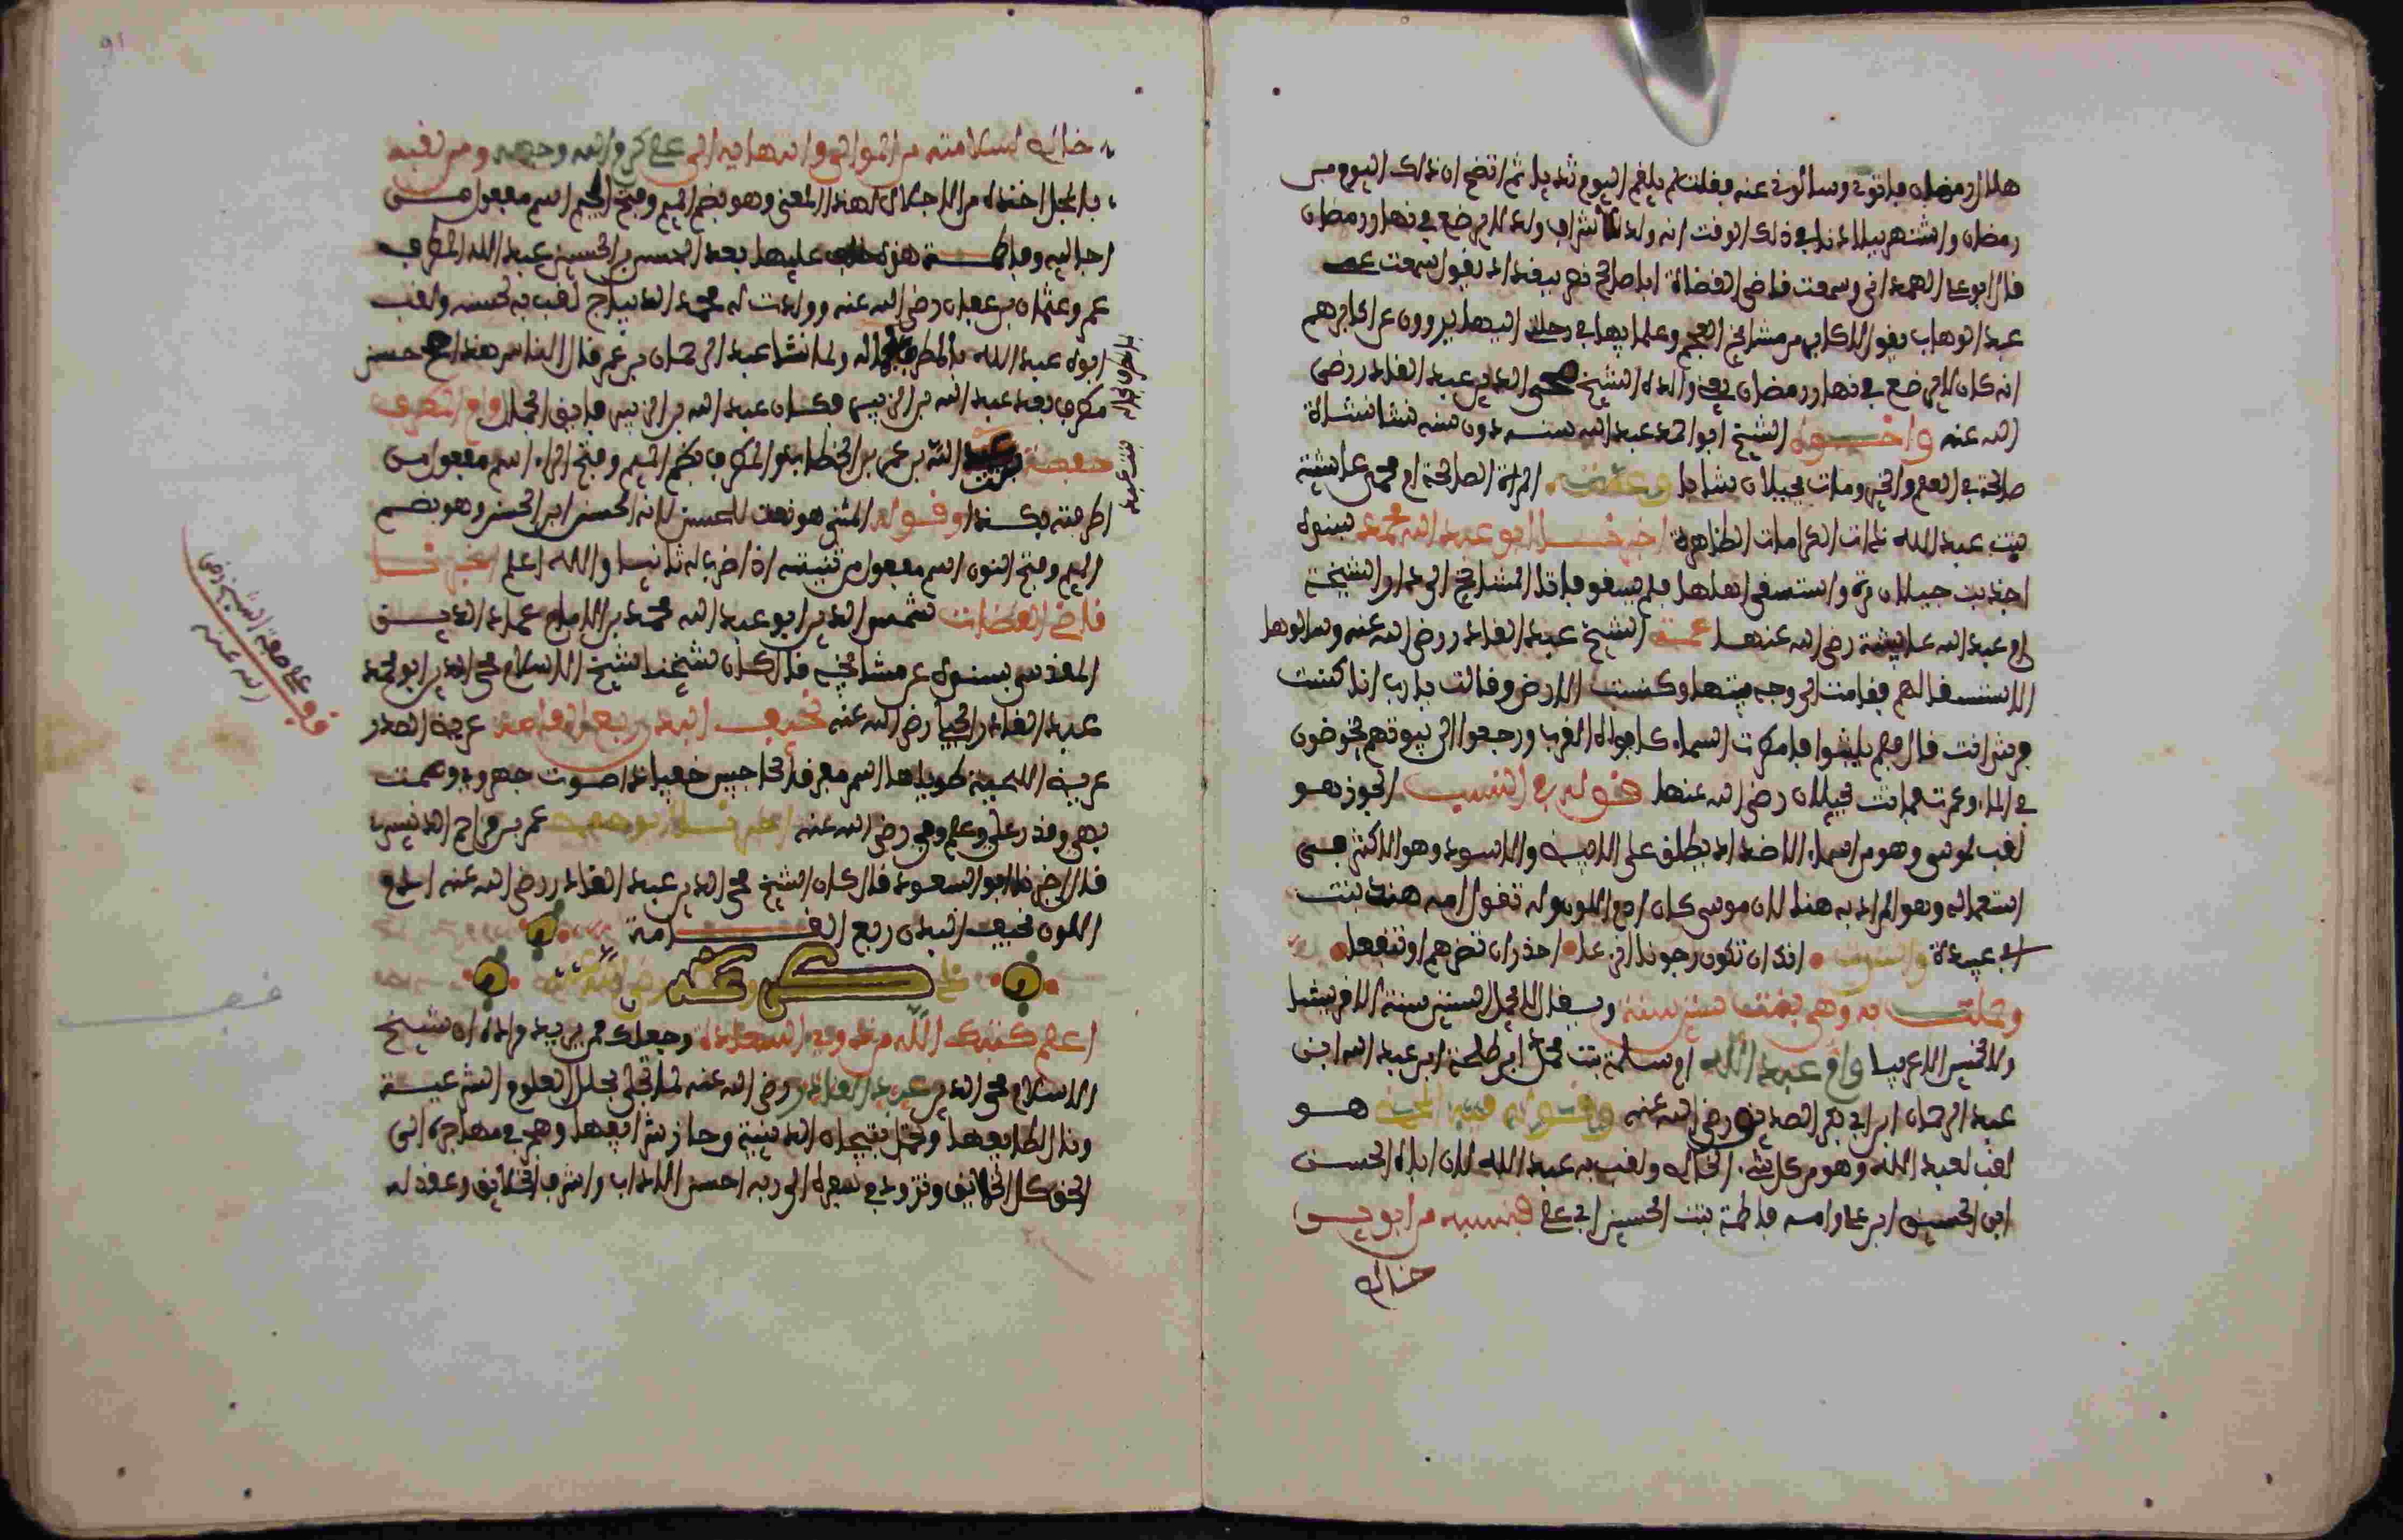 هلال رمضان فاتوني وسالوني عنه فقلت لم يلقم اليوم ثديا ثم اتضح ان ذلك اليوم من
رمضان واشتهر ببلادنا في ذلك الوقت انه ولد للاشراف ولد لا يرضع في نهار رمضان
قال ابو علي الهمداني وسمعت قاضي القضاة ابا صالح نصر ببغداد يقول سمعت عمي
عبد الوهاب يقول الاكابر من مشايخ العجم وعلمايها في رحلتي اليها يروون عن اكابرهم
انه كان لا يرضع في نهار رمضان يعني والده الشيخ محي الدين عبد القادر رضي
الله عنه واخوه الشيخ ابو احمد عبد الله سنه دون سنه نشا نشاة
صالحة في العلم والخير ومات بجيلان شابا وعمته المراة الصالحة ام محمد عايشة
بنت عبد الله ذات الكرامات الظاهرة اخبرنا ابو عبد الله محمد بسنده
اجدبت جيلان مرة واستسقى اهلها فلم يسقوا فاتا المشايخ الى دار الشيخة
ام عبد الله عايشة رضي الله عنها عمة الشيخ عبد القادر رضي الله عنه وسالوها
الاستسقا لهم فقامت الى رحبة بيتها وكنست الارض وقالت يا رب انا كنست
فرش انت قال فلم يلبثوا فامطرت السماء كافواه القرب ورجعوا الى بيوتهم يخوضون
في الماء وعمرت فماتت بجيلان رضي الله عنها قوله في النسب الجون هو
لقب لموسى وهو من اسماء الاضداد يطلق على الابيض والاسود وهو الاكثر في
استعماله وهو المراد به هنا لان موسى كان ادم اللون وله تقول امه هند بنت
ابي عبيدة وانشدت انك ان تكون جونا انزعا احذر ان تضرهم او تنفعا
وحملت به وهي بنت ستين سنة ويقال لا تحمل لستين سنة الا قريشية
ولا لخمسين الا عربية وام عبد الله ام سلمة بنت محمد ابن طلحة ابن عبد الله ابن
عبد الرحمان ابن ابي بكر الصديق رضي الله عنه وقوله فيه المحض هو
لقب لعبد الله وهو من كل شيء الخالص ولقب به عبد الله لان اباه الحسن
ابن الحسن ابن علي وامه فاطمة بنت الحسين ابن علي فنسبه من ابويه
خالص
خالص لسلامته من الموالي وانتهايه الى علي كرم الله وجهه ومن لقبه
بالمجل اخذه من الاجلال لهذا المعنى وهو بضم الميم وفتح الجيم اسم مفعول من
اجاليه وفاطمة هذه خلف عليها بعد الحسن بن الحسن عبد الله المطرف
عمرو عثمان بن عفان رضي الله عنه وولدت له محمد الديباج لقب به لحسنه ولقب
ابوه عبد الله بالمطرف لجماله ولما نشا عبد الرحمان بن عمر قال الناس هذا حسن
مطرف بعد عبد الله بن الزبير فكان عبد الله بن الزبير فايق الجمال وام المطرف
حفصة بنت عبد الله بن عمر بن الخطاب والمطرف بضم الميم وفتح الراء اسم مفعول من
اطرفته بكذا وقوله المثنى هو نعت للحسن لانه الحسن ابن الحسن وهو بضم
الميم وفتح النون اسم مفعول من ثنيته اذا ضربا له ثانيا والله اعلم اخبرنا
قاضي القضات شمس الدين ابو عبد الله محمد بن الامام عماد الدين
المقدسي بسنده عن مشايخه قال كان شيخنا شيخ الاسلام محي الدين ابو محمد
عبد القادر الجيلي رضي الله عنه نحيف البدن ربع القامة عريض الصدر
عريض اللحية طويلها اسمر مقرون الحاجبين خفيا ذا صوت جهوري وسمت
بهي وقدر علي وعلم وفي رضي الله عنه اخبرنا ابو حفص عمر بن مزاحم الدنيسري
قال اخبرنا ابو السعود قال كان الشيخ محي الدين عبد القادر رضي الله عنه ادم
اللون نحيف البدن ربع القامة
ذكر علمه
اعلم كنفك الله من ذوي السعادة وجعلك ممن يريد مراده ان شيخ
الاسلام محي الدين عبد القادر رضي الله عنه لما تجلى بحلل العلوم الشرعية
ونال لطايفها وتجمل بتيجان الدينية وحاز شرايفها وهجر في مهاجرته الى
الحق كل الخلايق وتزود في سفره الى ربه احسن الاداب واشرف الخلايق وعقد له
قف على صفة الشيخ رضي
الله عنه